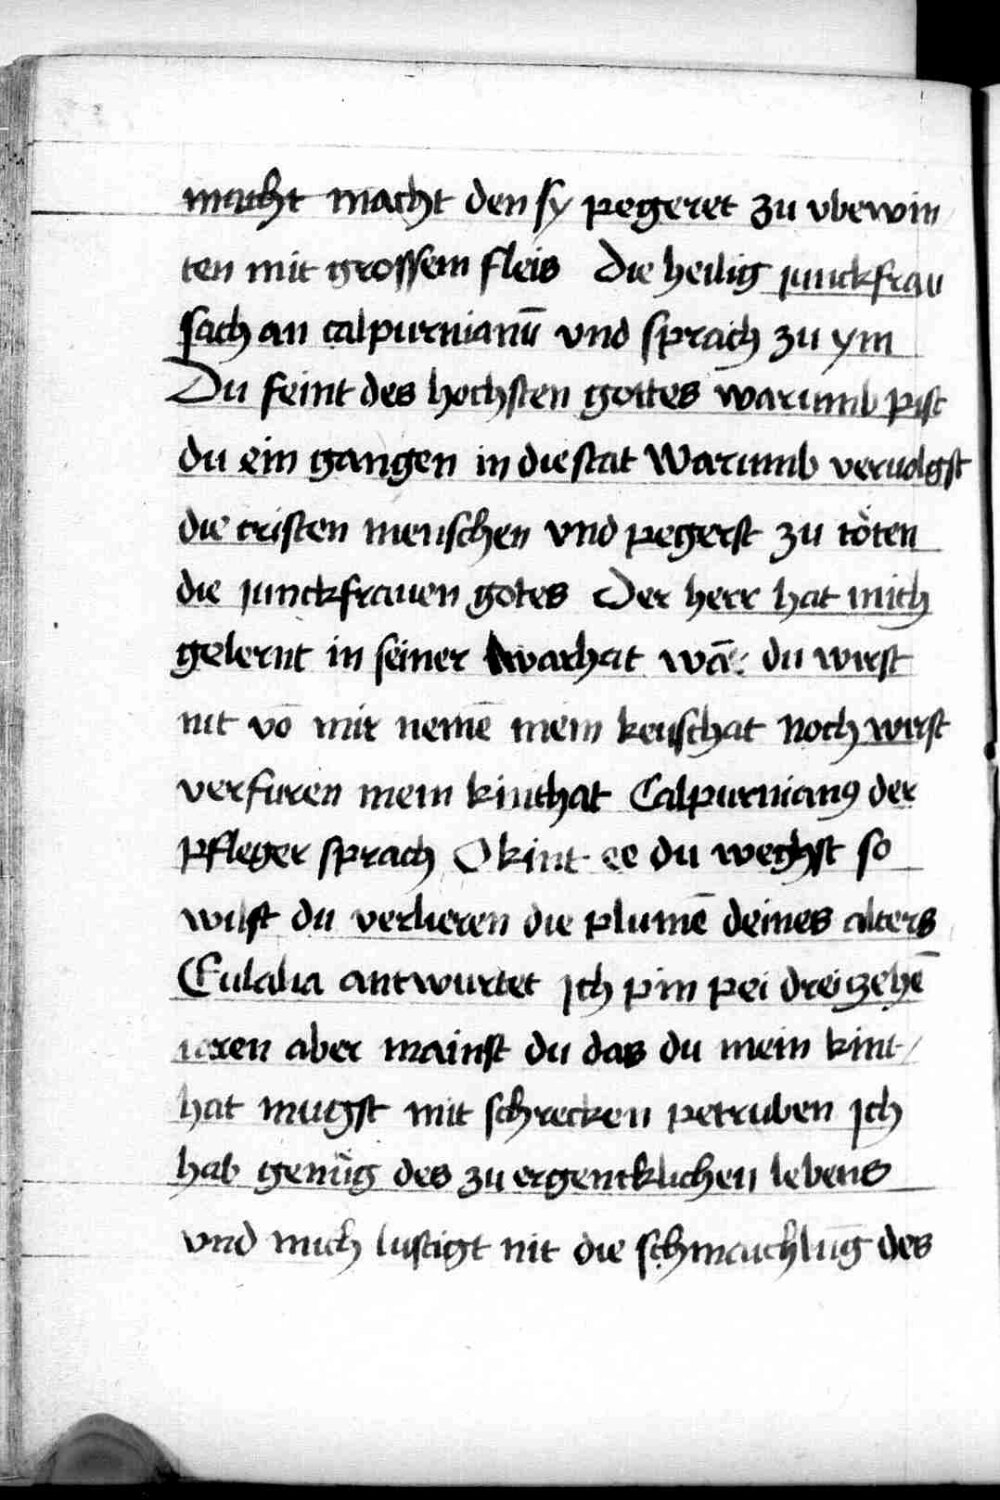 macht macht den sy pegeret zu vbewin
ten mit grossem fleis Die heilig junckfrau
sach an calpurnianū vnd sprach zu ym
Du feint des hochsten gottes warumb pist
du ein gangen in die stat Warumb veruolgst
die cristen menschen vnd pegerst zu töten
die junckfrauen gotes Der herr hat mich
gelernt in seiner warhat wā du wirst
nit vō mir nemē mein keuschat noch wirst
verfuren mein kinthat Calpurnianꝰ der
pfleger sprach O kint ee du wechst so
wilst du verlieren die plumē deines alters
Eulalia antwurtet jch pin pei dreizehē
iaren aber mainst du das du mein kint
hat mugst mit schrecken petruben jch
hab genüg des zu ergencklichen lebens
vnd mich lustigt nit die schmaichlūg des